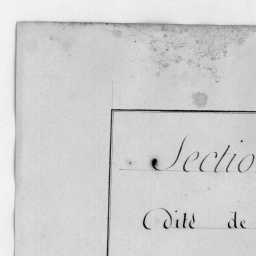 Sectio
Dite de